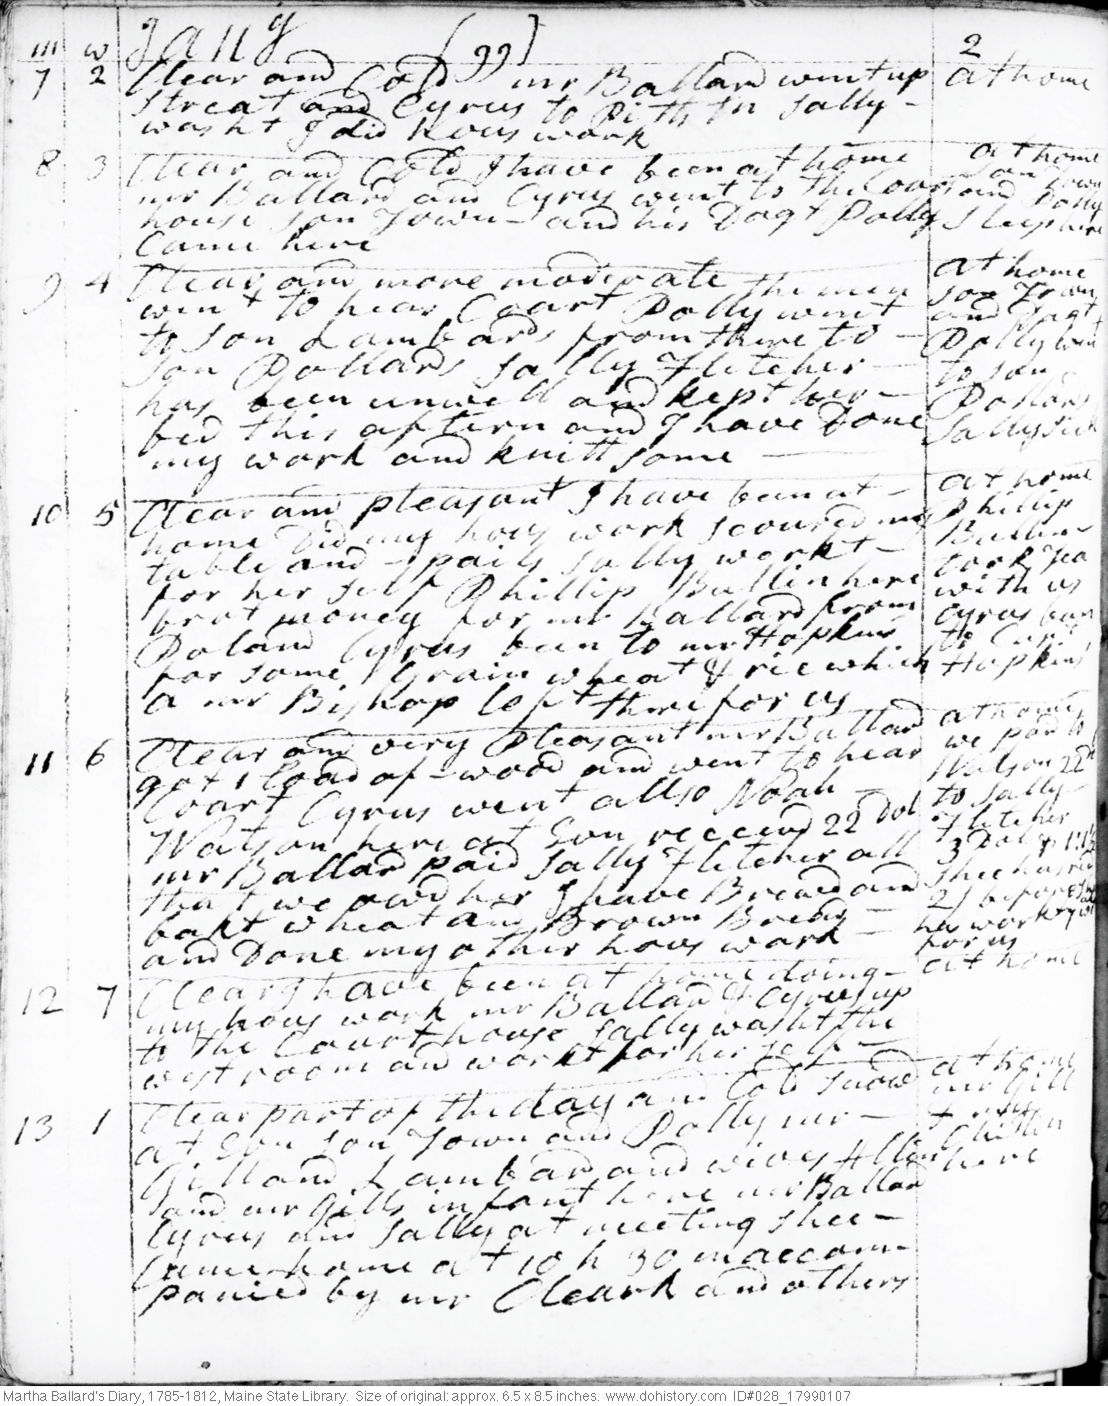 m w Jany [99] 2
7 2 Clear and Cold mr Ballard went up at home
Streat and Cyrus to Pittstn Sally -
washt I did hous work
8 3 Clear and Cold I have been at home at home
mr Ballard and Cyrus went to the Coart son Town
house son Town - and his Dagt Polly and Polly
Came here Sleep here
9 4 Clear and more moderate the men at home
went to hear Coart Polly went son Town
to son Lambards from there to - and Dagt
son Pollards Sally Fletcher - Polly went
has been unwell and kept her - to son
bed this aftern and I have Done Pollards
my work and knitt some - Sally Sick
10 5 Clear and pleasant I have been at - at home
home Did my hous work scoured my Phillip
table and - pails Sally workt - Bullin
for her self Phillip Bullin here took Tea
brot money for mr Ballard from with us
Poland Cyrus been to mr Hopkins Cyrus been
for some Grain wheat & rie which to Capt
a mr Bishop left there for us Hopkins
11 6 Clear and very Pleasant mr Ballard at home
got 1 load of - wood and went to hear we paid
Coart Cyrus went allso Noah - Watson 22
Watson here at Evn receivd 22 Dol to Sally
mr Ballard paid Sally Fletcher all Fletcher
that we owd her I have Brewd and 3 Dol
bakt wheat and Brown Bread - Shee has red
and Done my other hous work - 21 before
her work
for us
12 7 Clear I have been at home doing - at home
my hous work mr Ballard & Cyrus up
to the Court house Sally washt the
west room and workt for her self -
13 1 Clear part of the day and Cold Snowd at home
at Evn son Town and Polly mr - mr Gill
Gill and Lambard and wives Allin & wife
and mr Gills infant here mr Ballard Children
Cyrus and Sally at meeting shee - here
Came home at 10 h 30 m accom-
panied by mr Cleark and others
Martha Ballard's Diary, 1785-1812, Maine State Library. Size of original: approx. 6.5 x 8.5 inches. www.dohistory.com ID#028_17990107